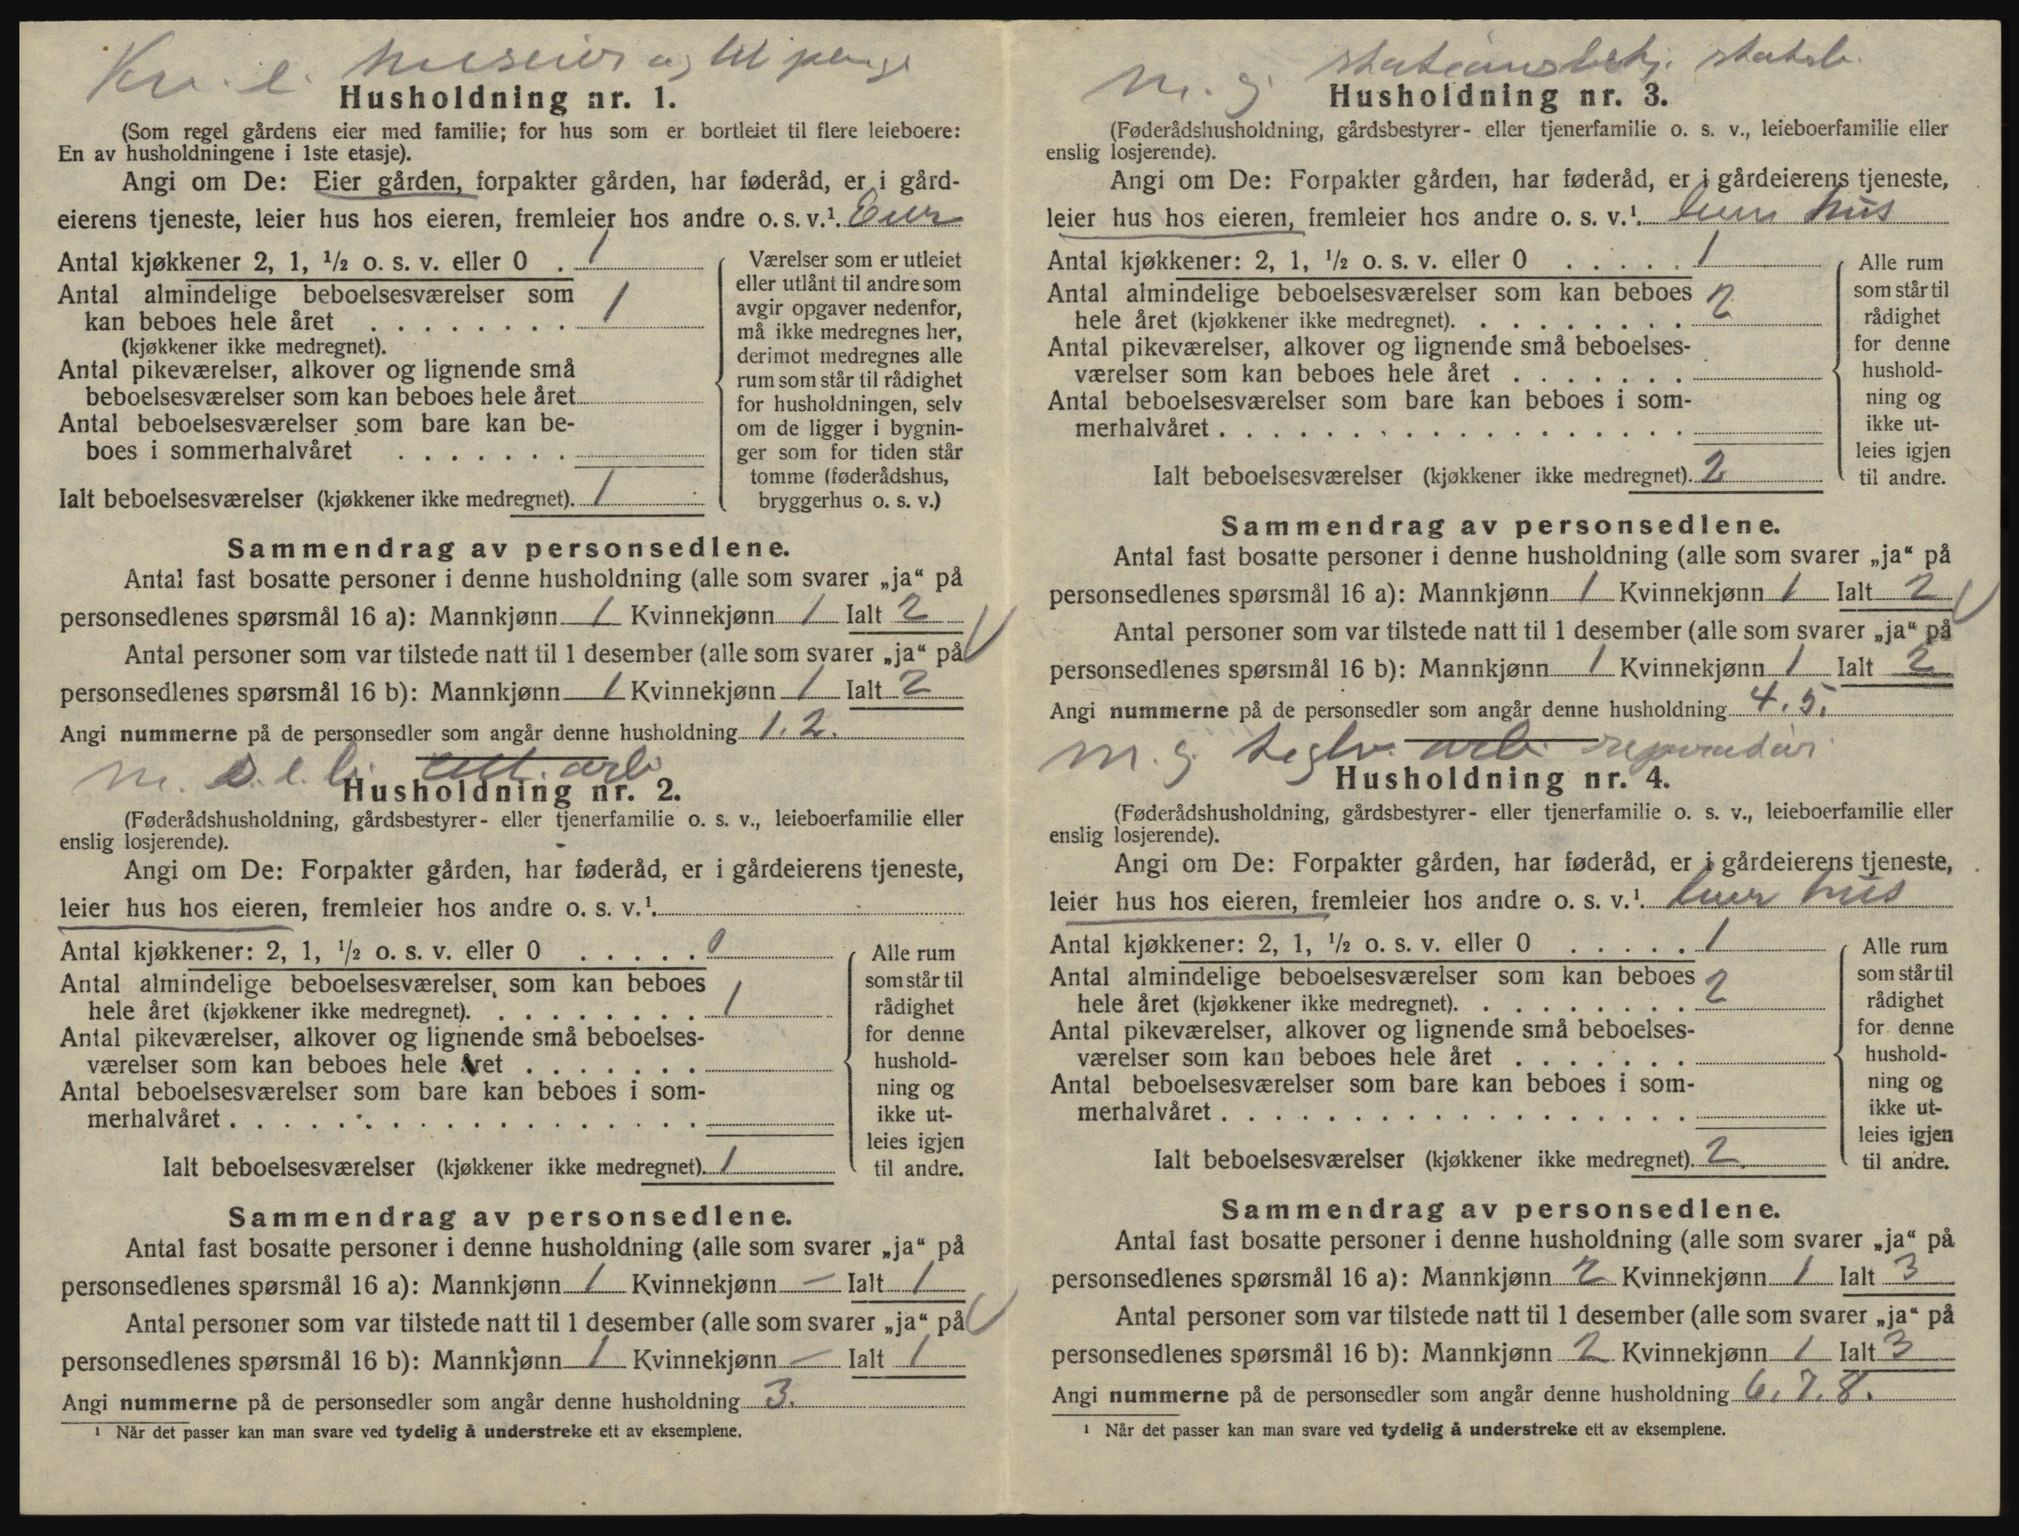 huseier og
Husholdning nr. 1.
(Som regel gårdens eier med familie; for hus som er bortleiet til flere leieboere:
En av husholdningene i 1ste etasje).
Angi om De: Eier gården, forpakter gården, har føderåd, er i gård-
eierens tjeneste, leier hus hos eieren, fremleier hos andre o. s. v.¹. Eier
Antal kjøkkener 2, 1, ½ o. s. v. eller 0 . 1
Antal almindelige beboelsesværelser som
kan beboes hele året . . . . . . . . 1
(kjøkkener ikke medregnet).
Antal pikeværelser, alkover og lignende små
beboelsesværelser som kan beboes hele året
Antal beboelsesværelser som bare kan be-
boes i sommerhalvåret . . . . . . .
Ialt beboelsesværelser (kjøkkener ikke medregnet). 1
Værelser som er utleiet
eller utlånt til andre som
avgir opgaver nedenfor,
må ikke medregnes her,
derimot medregnes alle
rum som står til rådighet
for husholdningen, selv
om de ligger i bygnin-
ger som for tiden står
tomme (føderådshus,
bryggerhus o. s. v.)
Sammendrag av personsedlene.
Antal fast bosatte personer i denne husholdning (alle som svarer „ja“ på
personsedlenes spørsmål 16 a): Mannkjønn 1 Kvinnekjønn 1 Ialt 2
Antal personer som var tilstede natt til 1 desember (alle som svarer „ja“ på
personsedlenes spørsmål 16 b): Mannkjønn 1 Kvinnekjønn 1 Ialt 2
Angi nummerne på de personsedler som angår denne husholdning 1. 2.
arb
Husholdning nr. 2.
(Føderådshusholdning, gårdsbestyrer- eller tjenerfamilie o. s. v., leieboerfamilie eller
enslig losjerende).
Angi om De: Forpakter gården, har føderåd, er i gårdeierens tjeneste,
leier hus hos eieren, fremleier hos andre o. s. v.¹.
Antal kjøkkener: 2, 1, ½ o. s. v. eller 0 . . . . . 0
Antal almindelige beboelsesværelser som kan beboes
hele året (kjøkkener ikke medregnet). . . . . . . . . 1
Antal pikeværelser, alkover og lignende små beboelses-
værelser som kan beboes hele året . . . . . . .
Antal beboelsesværelser som bare kan beboes i som-
merhalvåret . . . . . . . . . . . . . . . . . .
Ialt beboelsesværelser (kjøkkener ikke medregnet). 1
Alle rum
som står til
rådighet
for denne
hushold-
ning og
ikke ut-
leies igjen
til andre.
Sammendrag av personsedlene.
Antal fast bosatte personer i denne husholdning (alle som svarer „ja“ på
personsedlenes spørsmål 16 a): Mannkjønn 1 Kvinnekjønn – Ialt 1
Antal personer som var tilstede natt til 1 desember (alle som svarer „ja“ på
personsedlenes spørsmål 16 b): Mannkjønn 1 Kvinnekjønn – Ialt 1
Angi nummerne på de personsedler som angår denne husholdning 3.
¹ Når det passer kan man svare ved tydelig å understreke ett av eksemplene.
m. g. stationsbetj.
Husholdning nr. 3.
(Føderådshusholdning, gårdsbestyrer- eller tjenerfamilie o. s. v., leieboerfamilie eller
enslig losjerende).
Angi om De: Forpakter gården, har føderåd, er i gårdeierens tjeneste,
leier hus hos eieren, fremleier hos andre o. s. v.¹. leier hus
Antal kjøkkener: 2, 1, ½ o. s. v. eller 0 . . . . . 1
Antal almindelige beboelsesværelser som kan beboes
hele året (kjøkkener ikke medregnet). . . . . . . . . 2
Antal pikeværelser, alkover og lignende små beboelses-
værelser som kan beboes hele året . . . . . . .
Antal beboelsesværelser som bare kan beboes i som-
merhalvåret . . . . . . . . . . . . . . . . . .
Ialt beboelsesværelser (kjøkkener ikke medregnet). 2
Alle rum
som står til
rådighet
for denne
hushold-
ning og
ikke ut-
leies igjen
til andre.
Sammendrag av personsedlene.
Antal fast bosatte personer i denne husholdning (alle som svarer „ja“ på
personsedlenes spørsmål 16 a): Mannkjønn 1 Kvinnekjønn 1 Ialt 2
Antal personer som var tilstede natt til 1 desember (alle som svarer „ja“ på
personsedlenes spørsmål 16 b): Mannkjønn 1 Kvinnekjønn 1 Ialt 2
Angi nummerne på de personsedler som angår denne husholdning 4. 5.
m. g. teglv. arb. reparatør
Husholdning nr. 4.
(Føderådshusholdning, gårdsbestyrer- eller tjenerfamilie o. s. v., leieboerfamilie eller
enslig losjerende).
Angi om De: Forpakter gården, har føderåd, er i gårdeierens tjeneste,
leier hus hos eieren, fremleier hos andre o. s. v.¹. leier hus
Antal kjøkkener: 2, 1, ½ o. s. v. eller 0 . . . . . 1
Antal almindelige beboelsesværelser som kan beboes
hele året (kjøkkener ikke medregnet). . . . . . . . . 2
Antal pikeværelser, alkover og lignende små beboelses-
værelser som kan beboes hele året . . . . . . .
Antal beboelsesværelser som bare kan beboes i som-
merhalvåret . . . . . . . . . . . . . . . . . .
Ialt beboelsesværelser (kjøkkener ikke medregnet). 2.
Alle rum
som står til
rådighet
for denne
hushold-
ning og
ikke ut-
leies igjen
til andre.
Sammendrag av personsedlene.
Antal fast bosatte personer i denne husholdning (alle som svarer „ja“ på
personsedlenes spørsmål 16 a): Mannkjønn 2 Kvinnekjønn 1 Ialt 3
Antal personer som var tilstede natt til 1 desember (alle som svarer „ja“ på
personsedlenes spørsmål 16 b): Mannkjønn 2 Kvinnekjønn 1 Ialt 3
Angi nummerne på de personsedler som angår denne husholdning 6. 7. 8.
¹ Når det passer kan man svare ved tydelig å understreke ett av eksemplene.